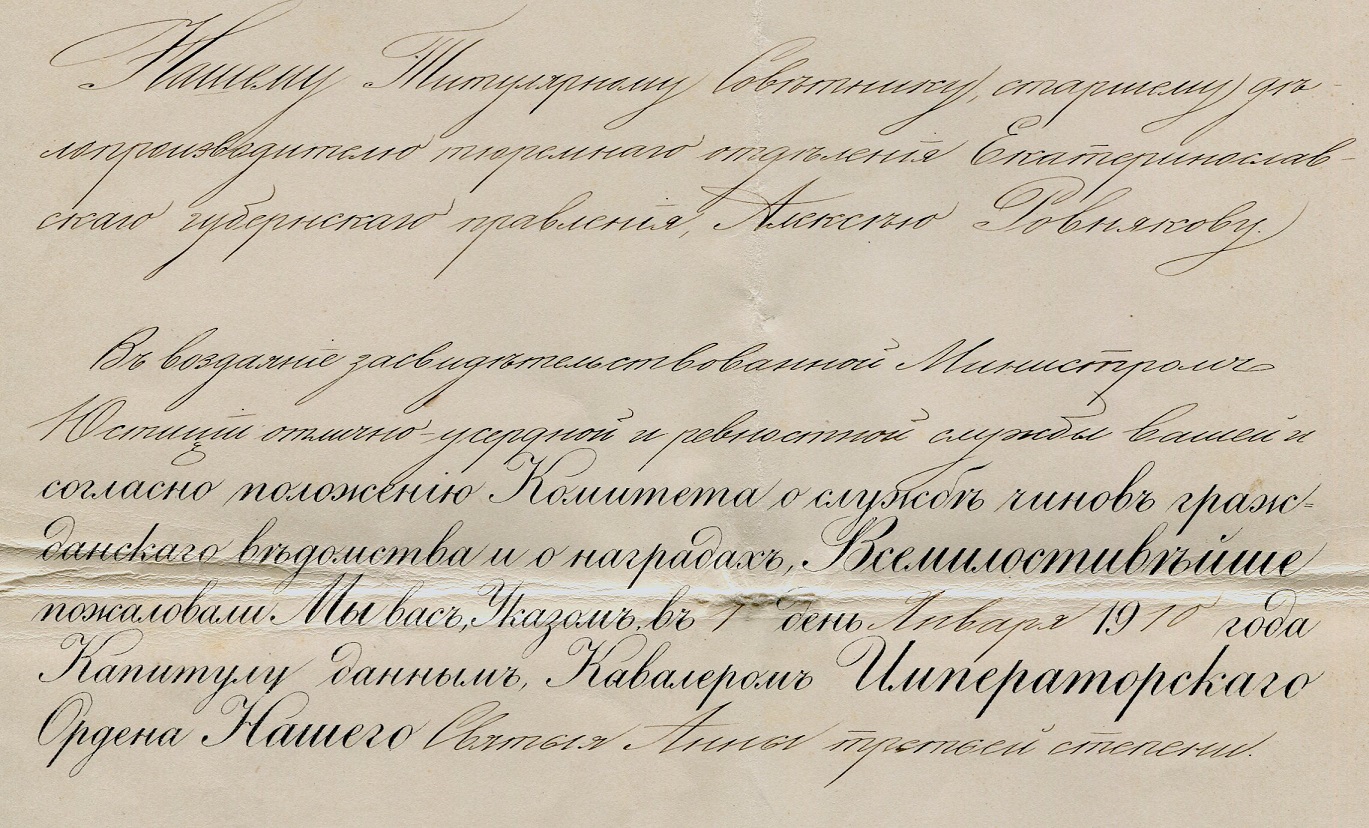 Нашему Титулярному Совѣтнику, старшему дѣ-
лопроизводителю тюремнаго отдѣленія Екатеринослав-
скаго губернскаго правленія, Алексѣю Ровнякову.
Въ воздаяніе засвидѣтельствованной Министромъ
Юстиціи отлично-усердной и ревностной службы вашей и
согласно положенію Комитета о службѣ чиновъ граж-
данскаго вѣдомства и о наградахъ, Всемилостивѣйше
пожаловали Мы васъ, Указомъ, въ 1 день Января 1910 года
Капитулу даннымъ, Кавалеромъ Императорскаго
Ордена Нашего Святыя Анны третьей степени.